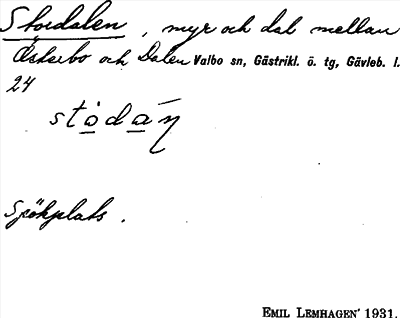 Stordalen, myr och dal mellan
Östërbo och Dalen Valbo sn, Gästrikl. ö. tg, Gävleb. l.
24
stȧdaǹ
Spökplats.
EMIL LEMHAGEN 1931.